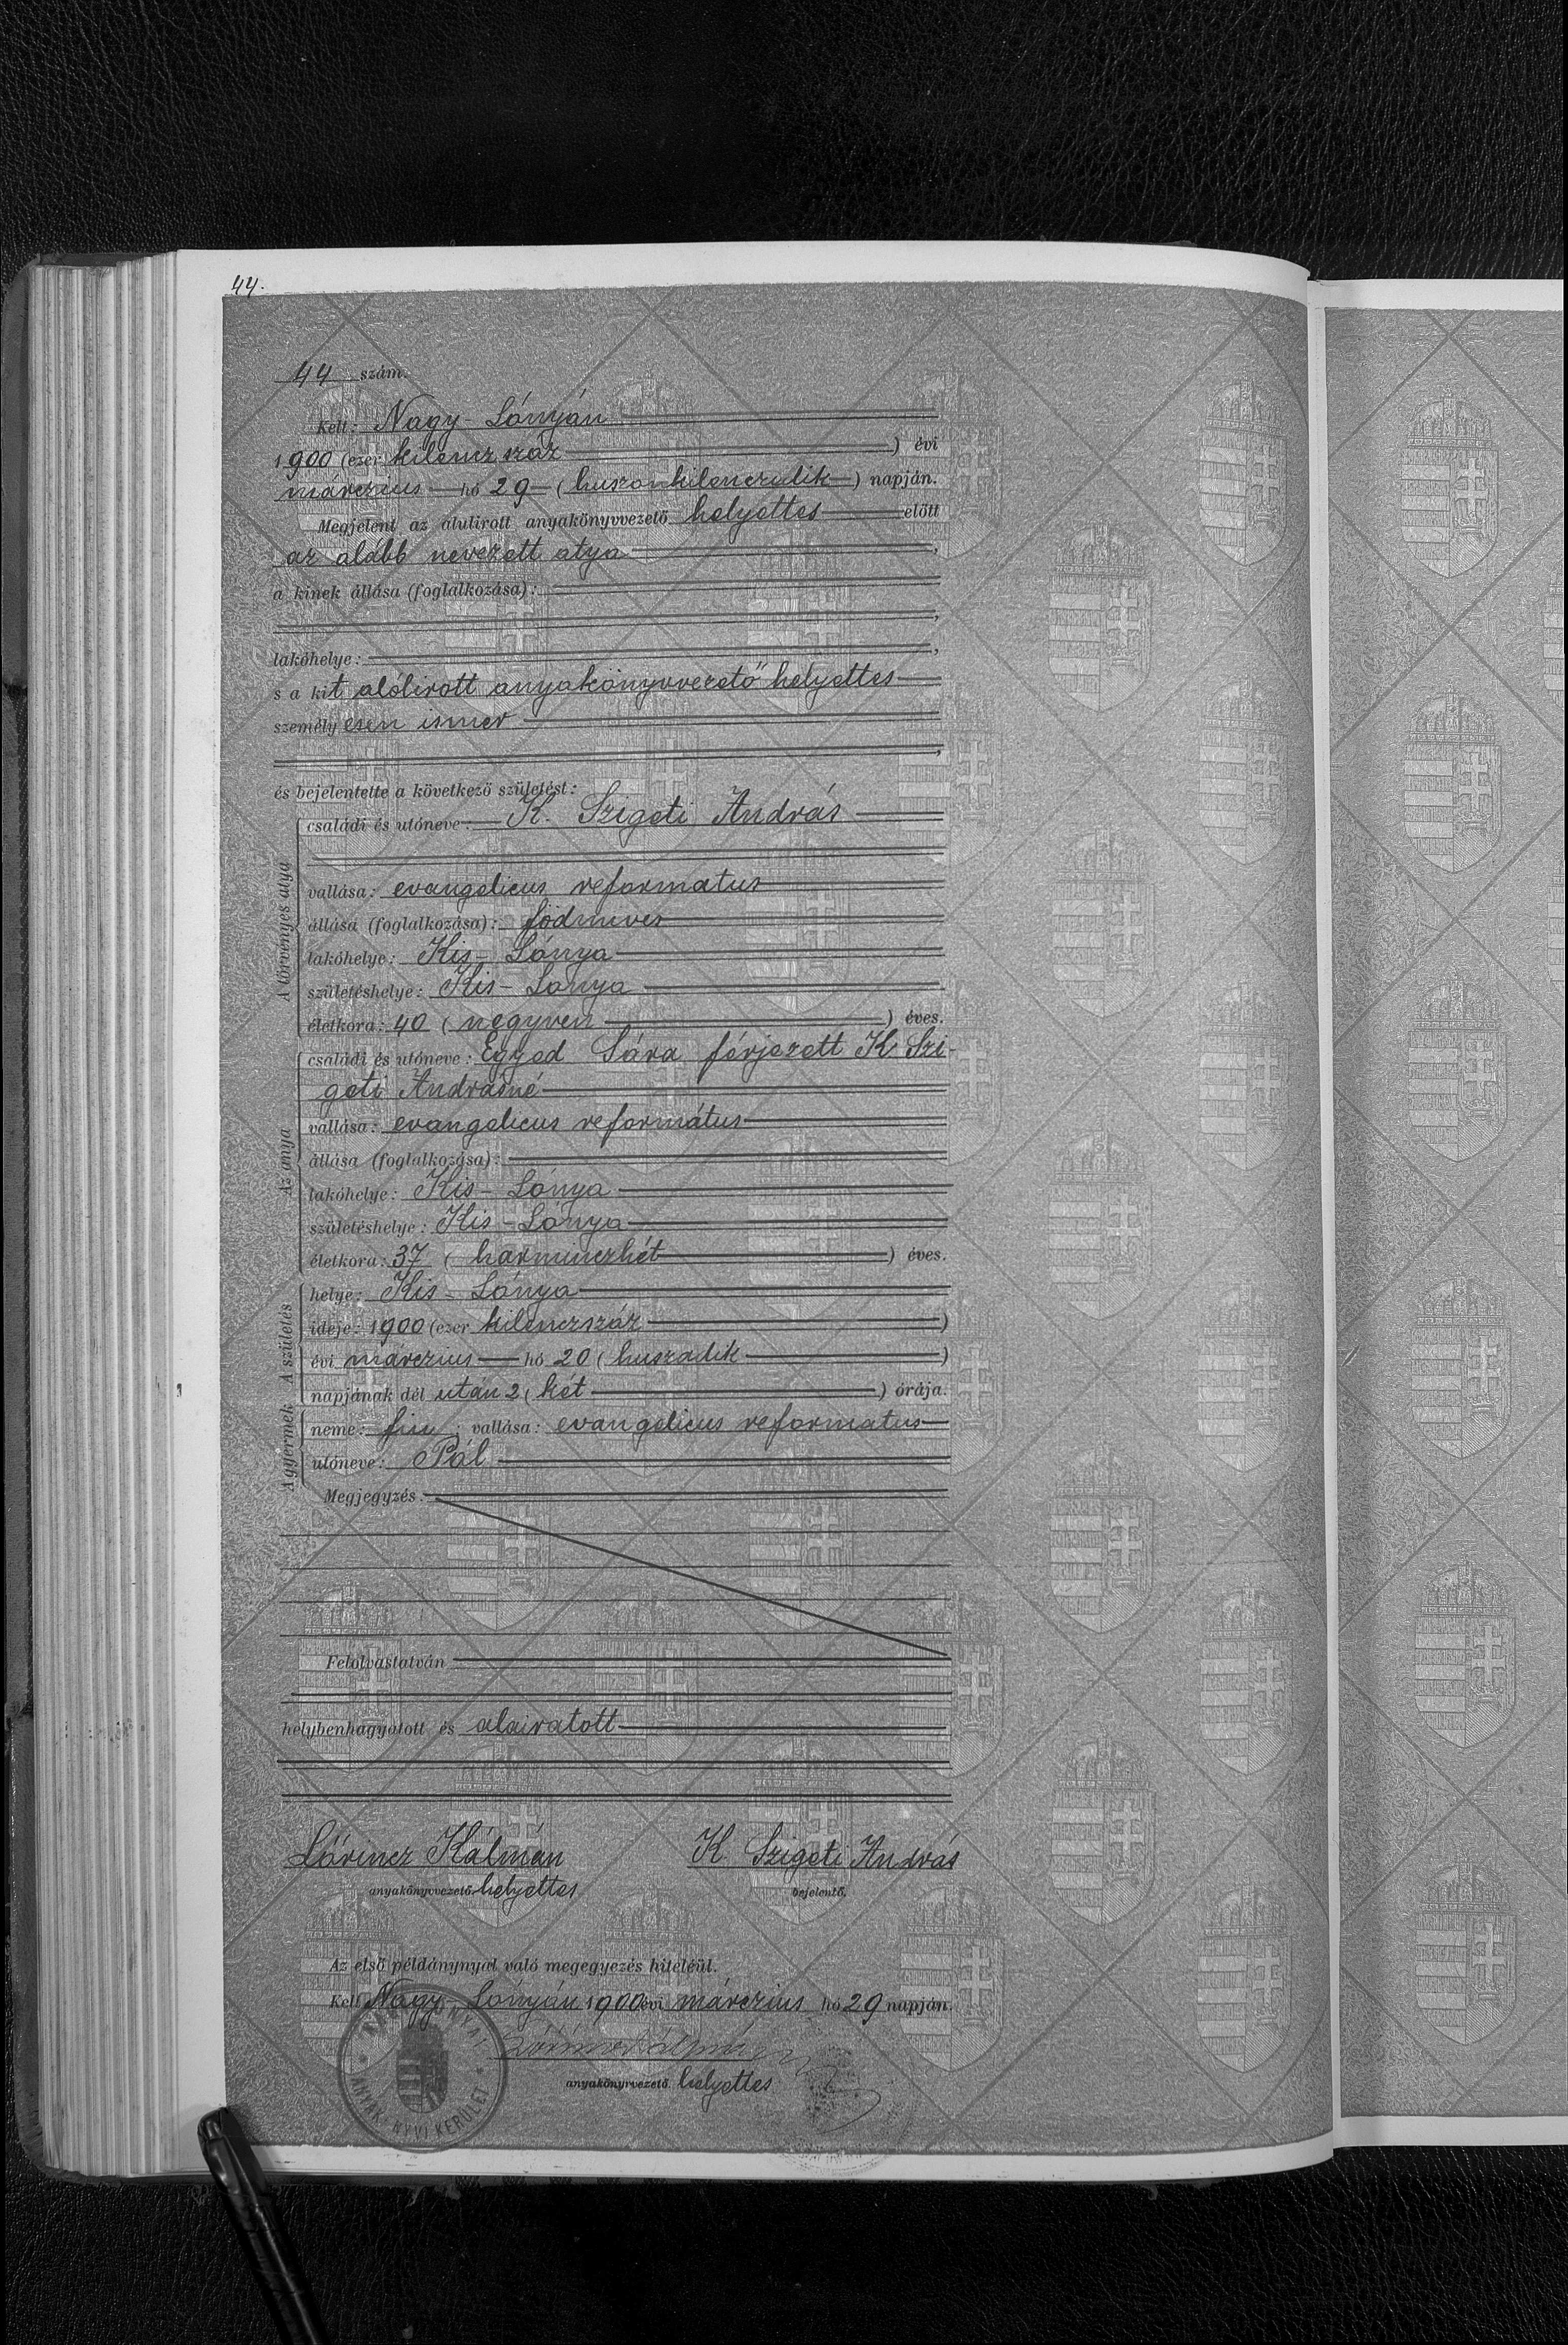 44.
44 szám.
Kelt: Nagy-Lónyán
1900 (ezer kilencz száz) évi
márczius hó 29 (huszonkilenczedik) napján.
Megjelent az alulirott anyakönyvvezető helyettes előtt
az alább nevezett atya,
a kinek állása (foglalkozása):
,
lakóhelye: ,
s a kit alólirott anyakönyvvezető helyettes
személyesen ismer
,
és bejelentette a következő születést:
A törvényes atya
családi és utóneve: K. Szigeti András
vallása: evangelicus reformatus
állása (foglalkozása): födmives
lakóhelye: Kis-Lónya
születéshelye: Kis-Lónya
életkora: 40 (negyven) éves.
Az anya
családi és utóneve: Egyed Sára férjezett K. Szi-
geti Andrásné
vallása: evangelicus református
állása (foglalkozása):
lakóhelye: Kis-Lónya
születéshelye: Kis-Lónya
életkora: 37 (harminczhét) éves.
A születés
helye: Kis-Lónya
ideje: 1900 (ezer kilenczszáz)
évi márczius hó 20 (huszadik)
napjának dél után 2 (két) órája.
A gyermek
neme: fiu; vallása: evangelicus reformatus
utóneve: Pál
Megjegyzés:
Felolvastatván
helybenhagyatott és alairatott
Lőrincz Kálmán K. Szigeti András
anyakönyvvezető helyettes bejelentő.
Az első példánynyal való megegyezés hiteléül.
Kelt Nagy-Lónyán 1900 évi márczius hó 29 napján.
Lőrincz Kálmán
anyakönyvvezető helyettes
ANYAKÖNYVI KERÜLET